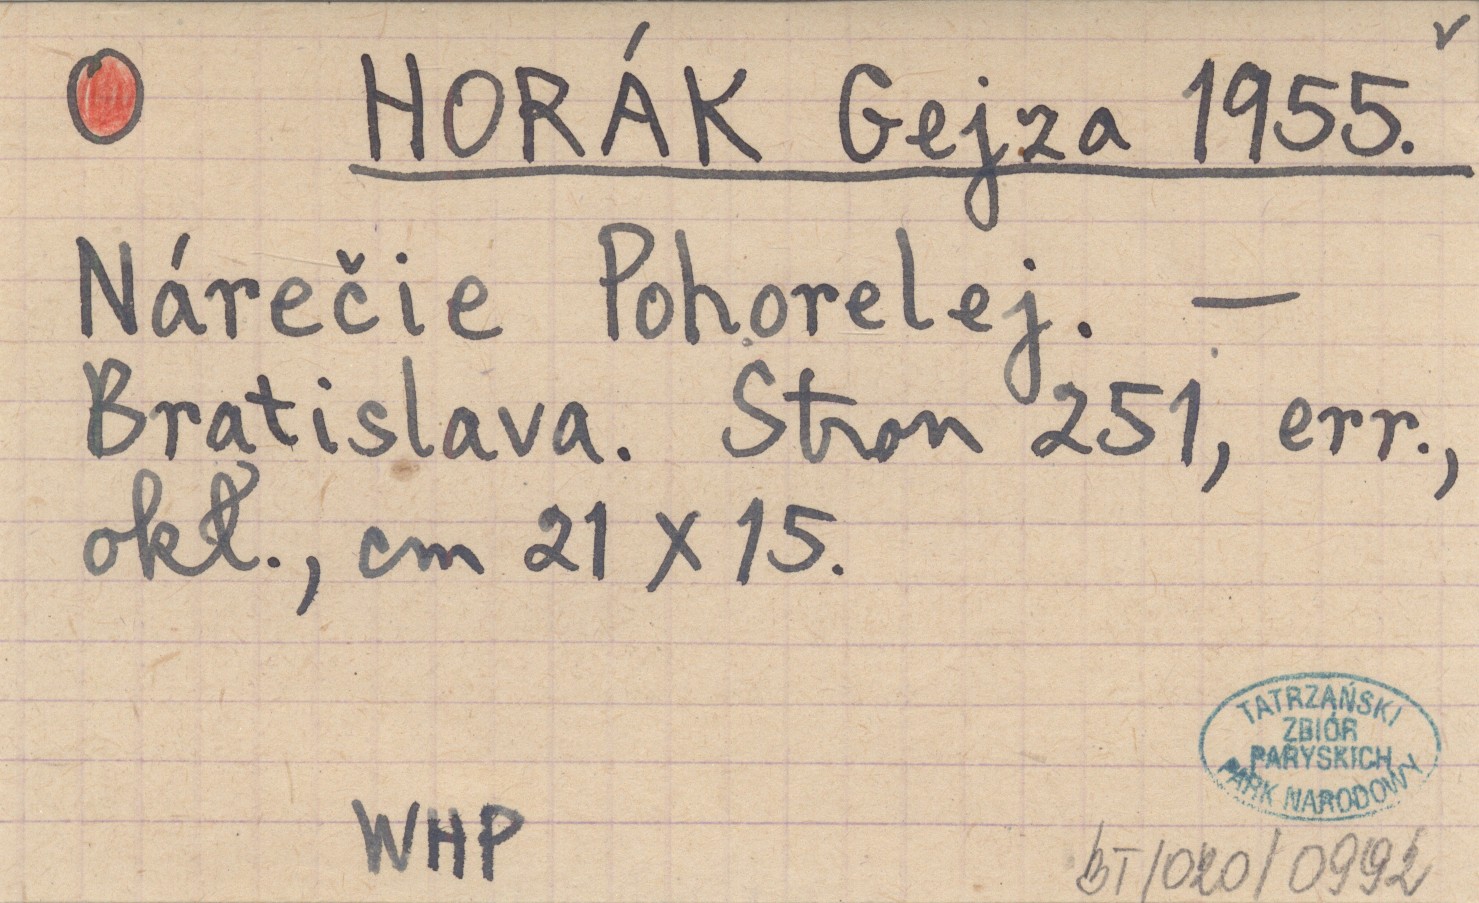 HORÁK Gejza 1955.
Nárečie Pohorelej. —
Bratislava. Stron 251, err.,
okł., cm 21 x 15.
TATRZAŃSKI
ZBIÓR
PARYSKICH
PARK NARODOWY
WHP
BT/020/0992